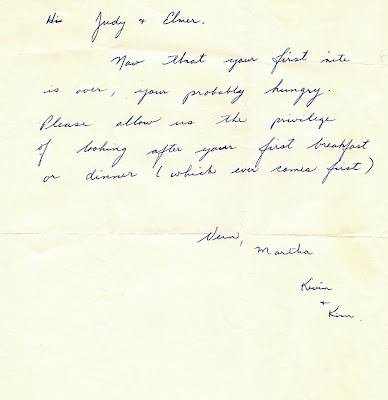 Hi Judy & Elmer.
Now that your first nite
is over, your probably hungry.
Please allow us the privilege
of looking after your first breakfast
or dinner (which ever comes first)
Vern, Martha
Kevin
&
Kim.